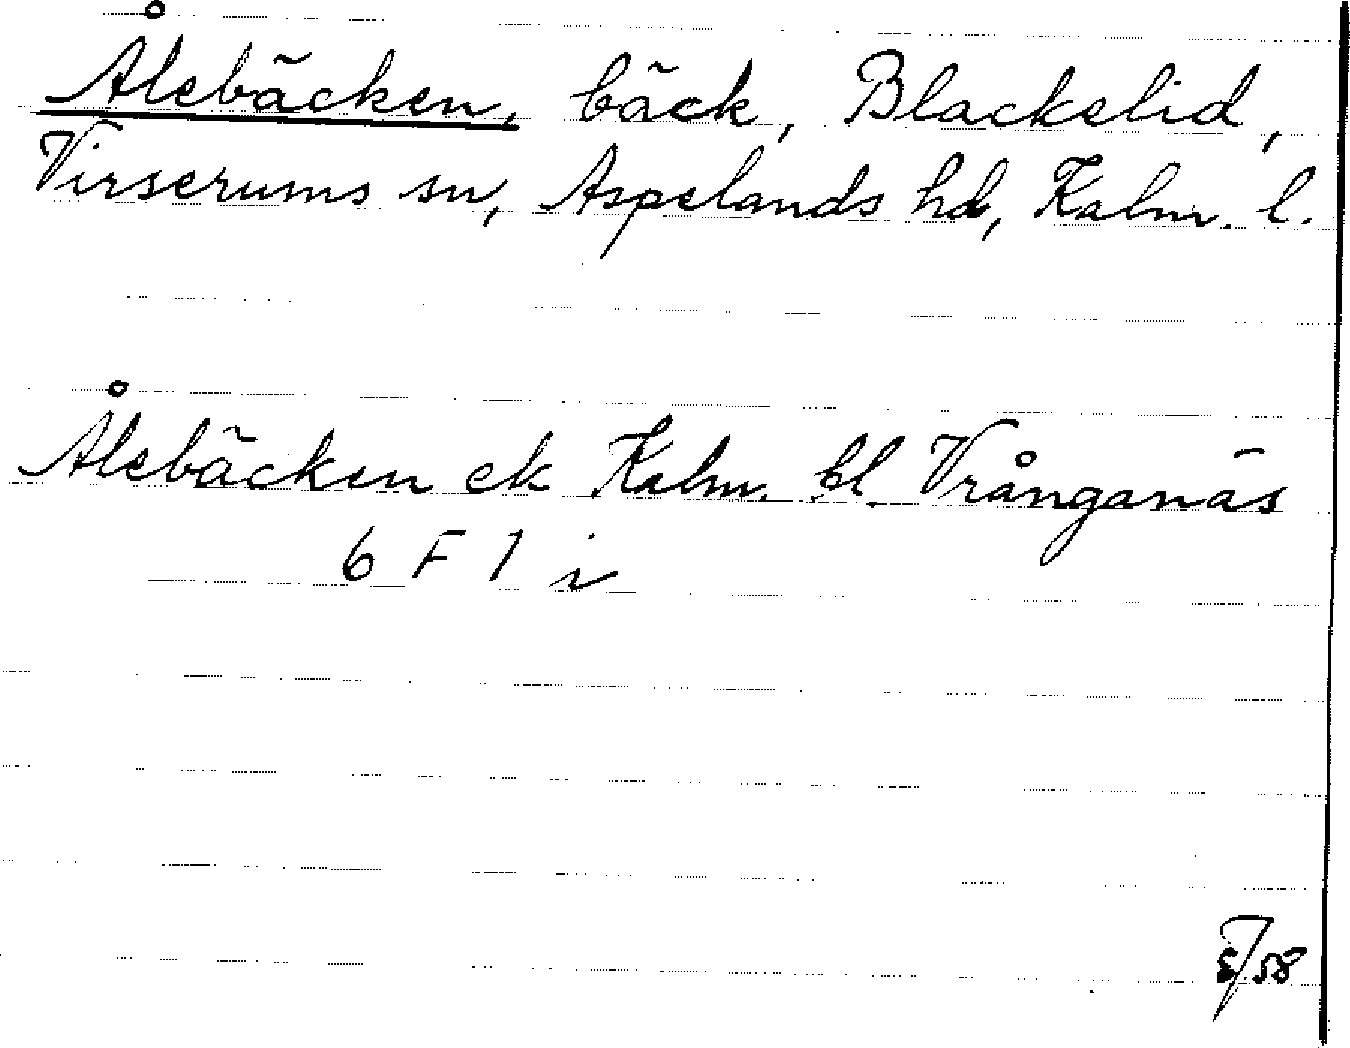 Ålebäcken, bäck, Blackelid,
Virserums sn, Aspelands hd, Kalm. l.
Ålebäcken ek Kalm. bl. Vrånganäs
6 F 1 i